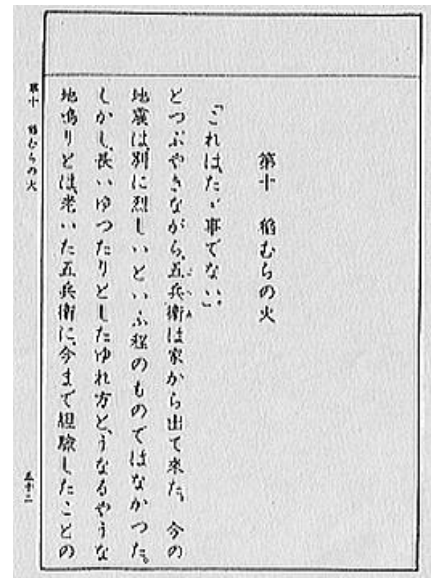 第十 稻むらの火
「これは、たゞ事でない。」
とつぶやきながら、五兵衞は家から出て來た。今の
地震は、別に烈しいといふ程のものではなかつた。
しかし、長いゆつたりとしたゆれ方と、うなるやうな
地鳴りとは、老いた五兵衞に、今まで經驗したことの
第十 稻むらの火
五十二